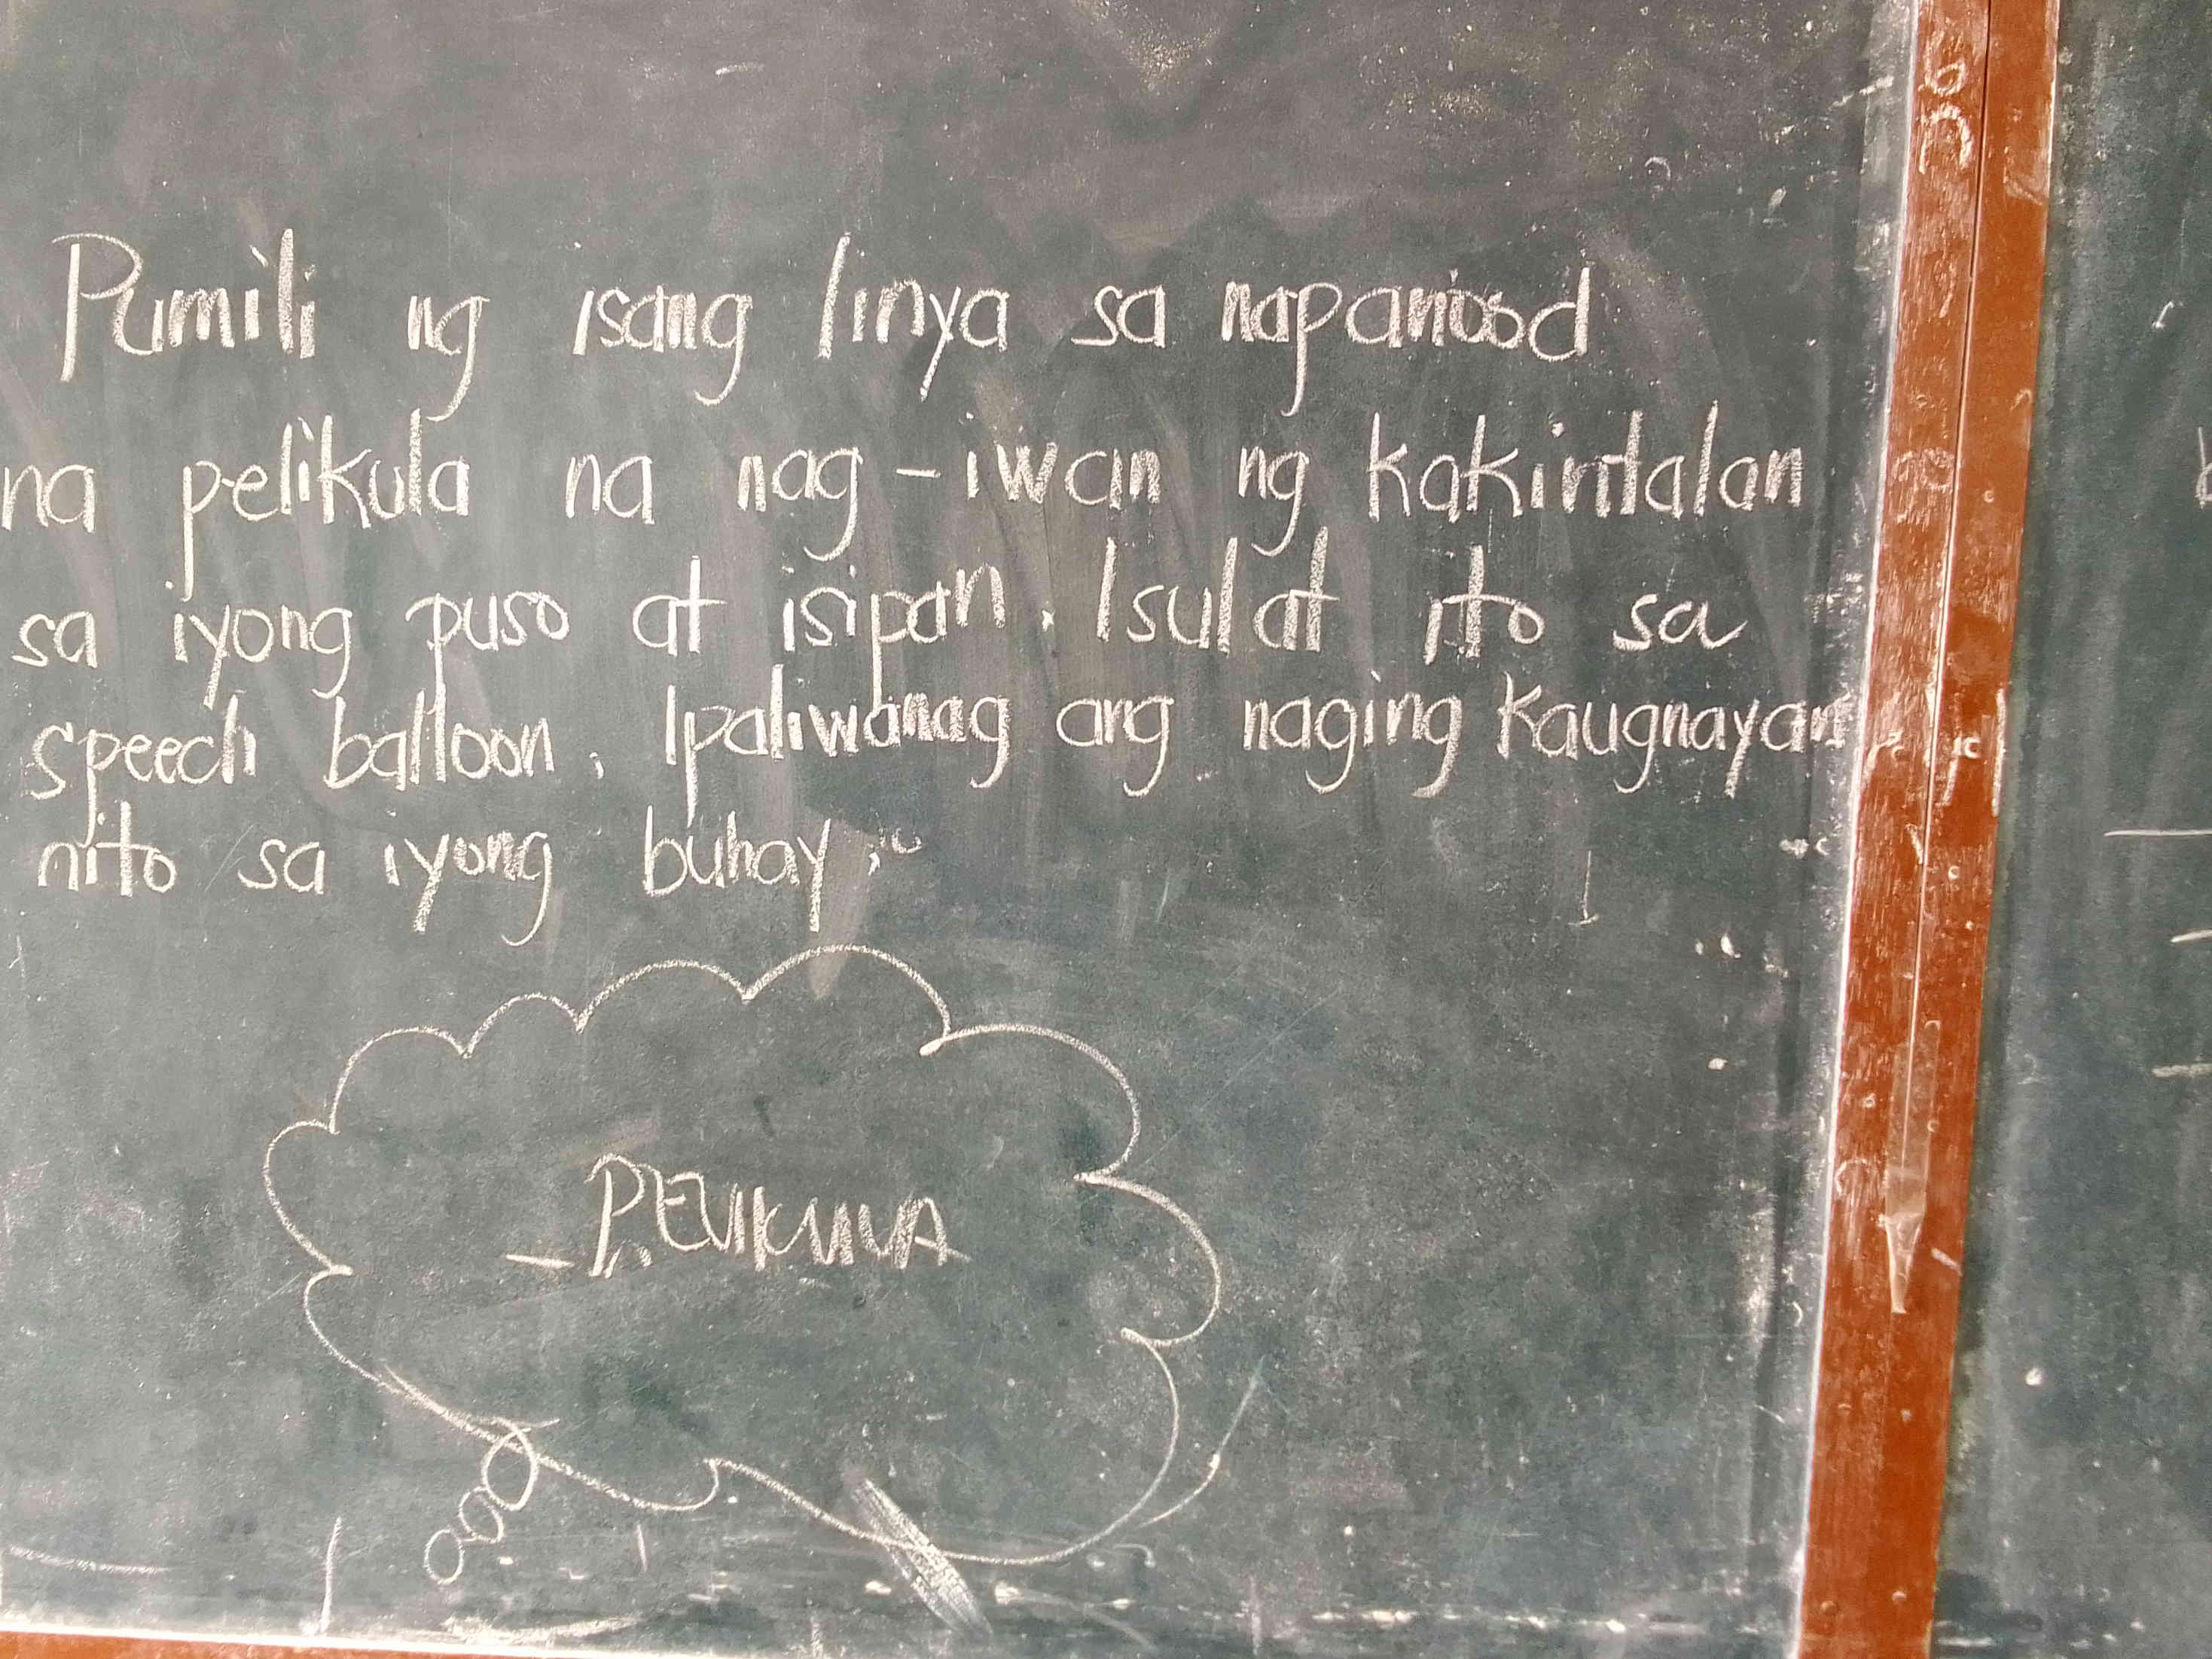 Pumili ng isang linya sa napanood
na pelikula na nag-iwan ng kakintalan
sa iyong puso at isipan. Isulat ito sa
speech balloon. Ipaliwanag ang naging kaugnayan
nito sa iyong buhay.
PELIKULA